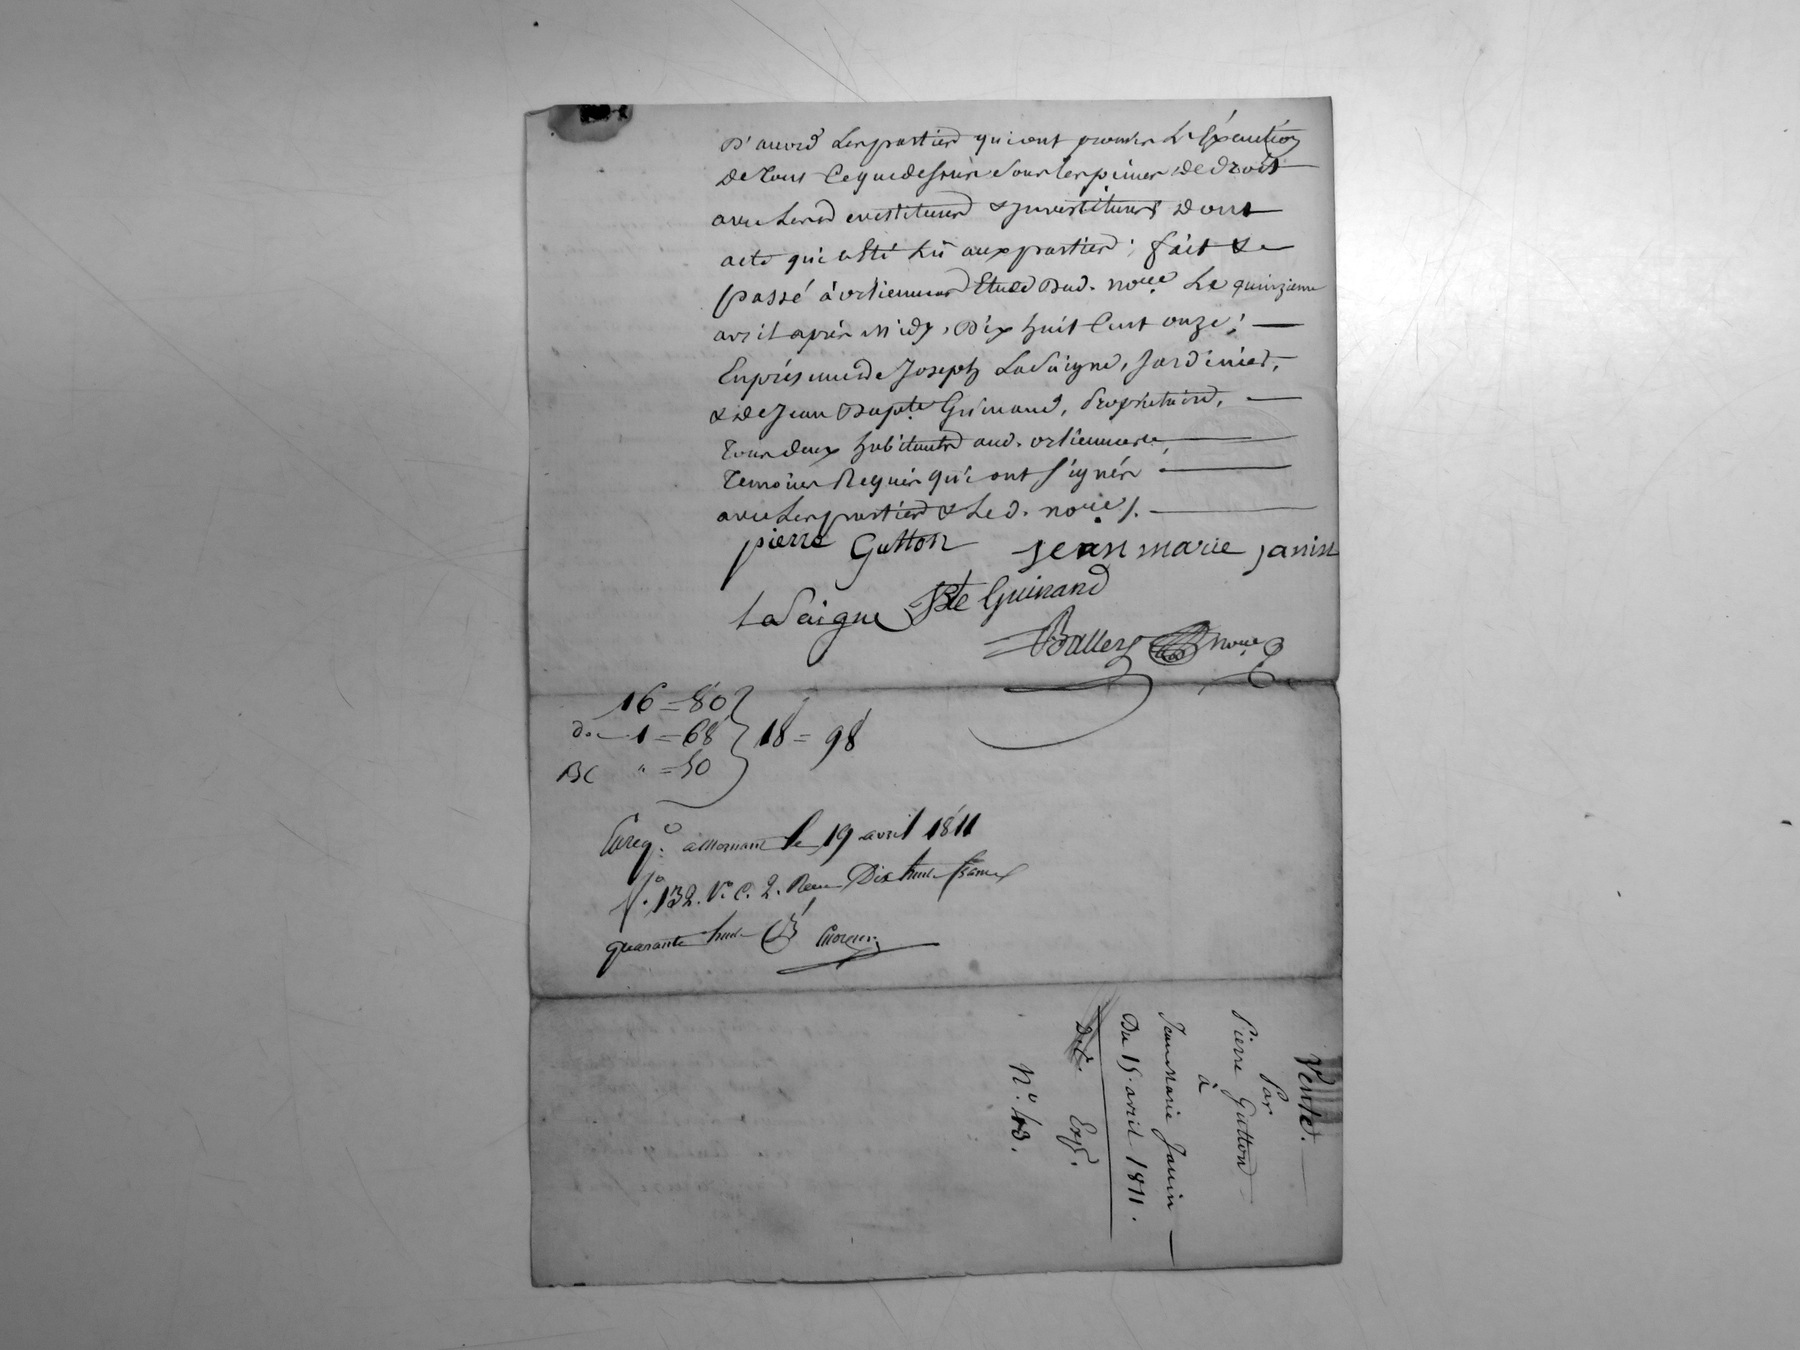 D'accord les parties qui ont promis L'Exécution
de tout ce que dessus sous les peines de droit
avec leurs devestitures & jnvestitures dont
acte qui a été Lû aux parties; fait &
passé à Orliennas Etude Dud. noire Le quinzieme
avril après Midy, Dix huit Cent onze; —
En présence de Joseph LaSaigne, Jardinier,
& de Jean Bapte. Guinand, Propriétaire, —
tous deux habitants aud. orliennas, —
Témoins Requis qui ont signés —
avec Les parties & Le d. noire /. —
pierre Gutton jean marie janin
LaSaigne JBte Guinand
noire
16 = 80
d. — 1 = 68 18 = 98
BC " = 50
Enreg. à Mornant le 19 avril 1811
fo. 132. Vo. C. 2. Reçu Dix huit francs
quarante huit
Vente. —
Par
Pierre Gutton
à
Jean Marie Janin —
Du 15. avril 1811.
Exp.
No. 43.